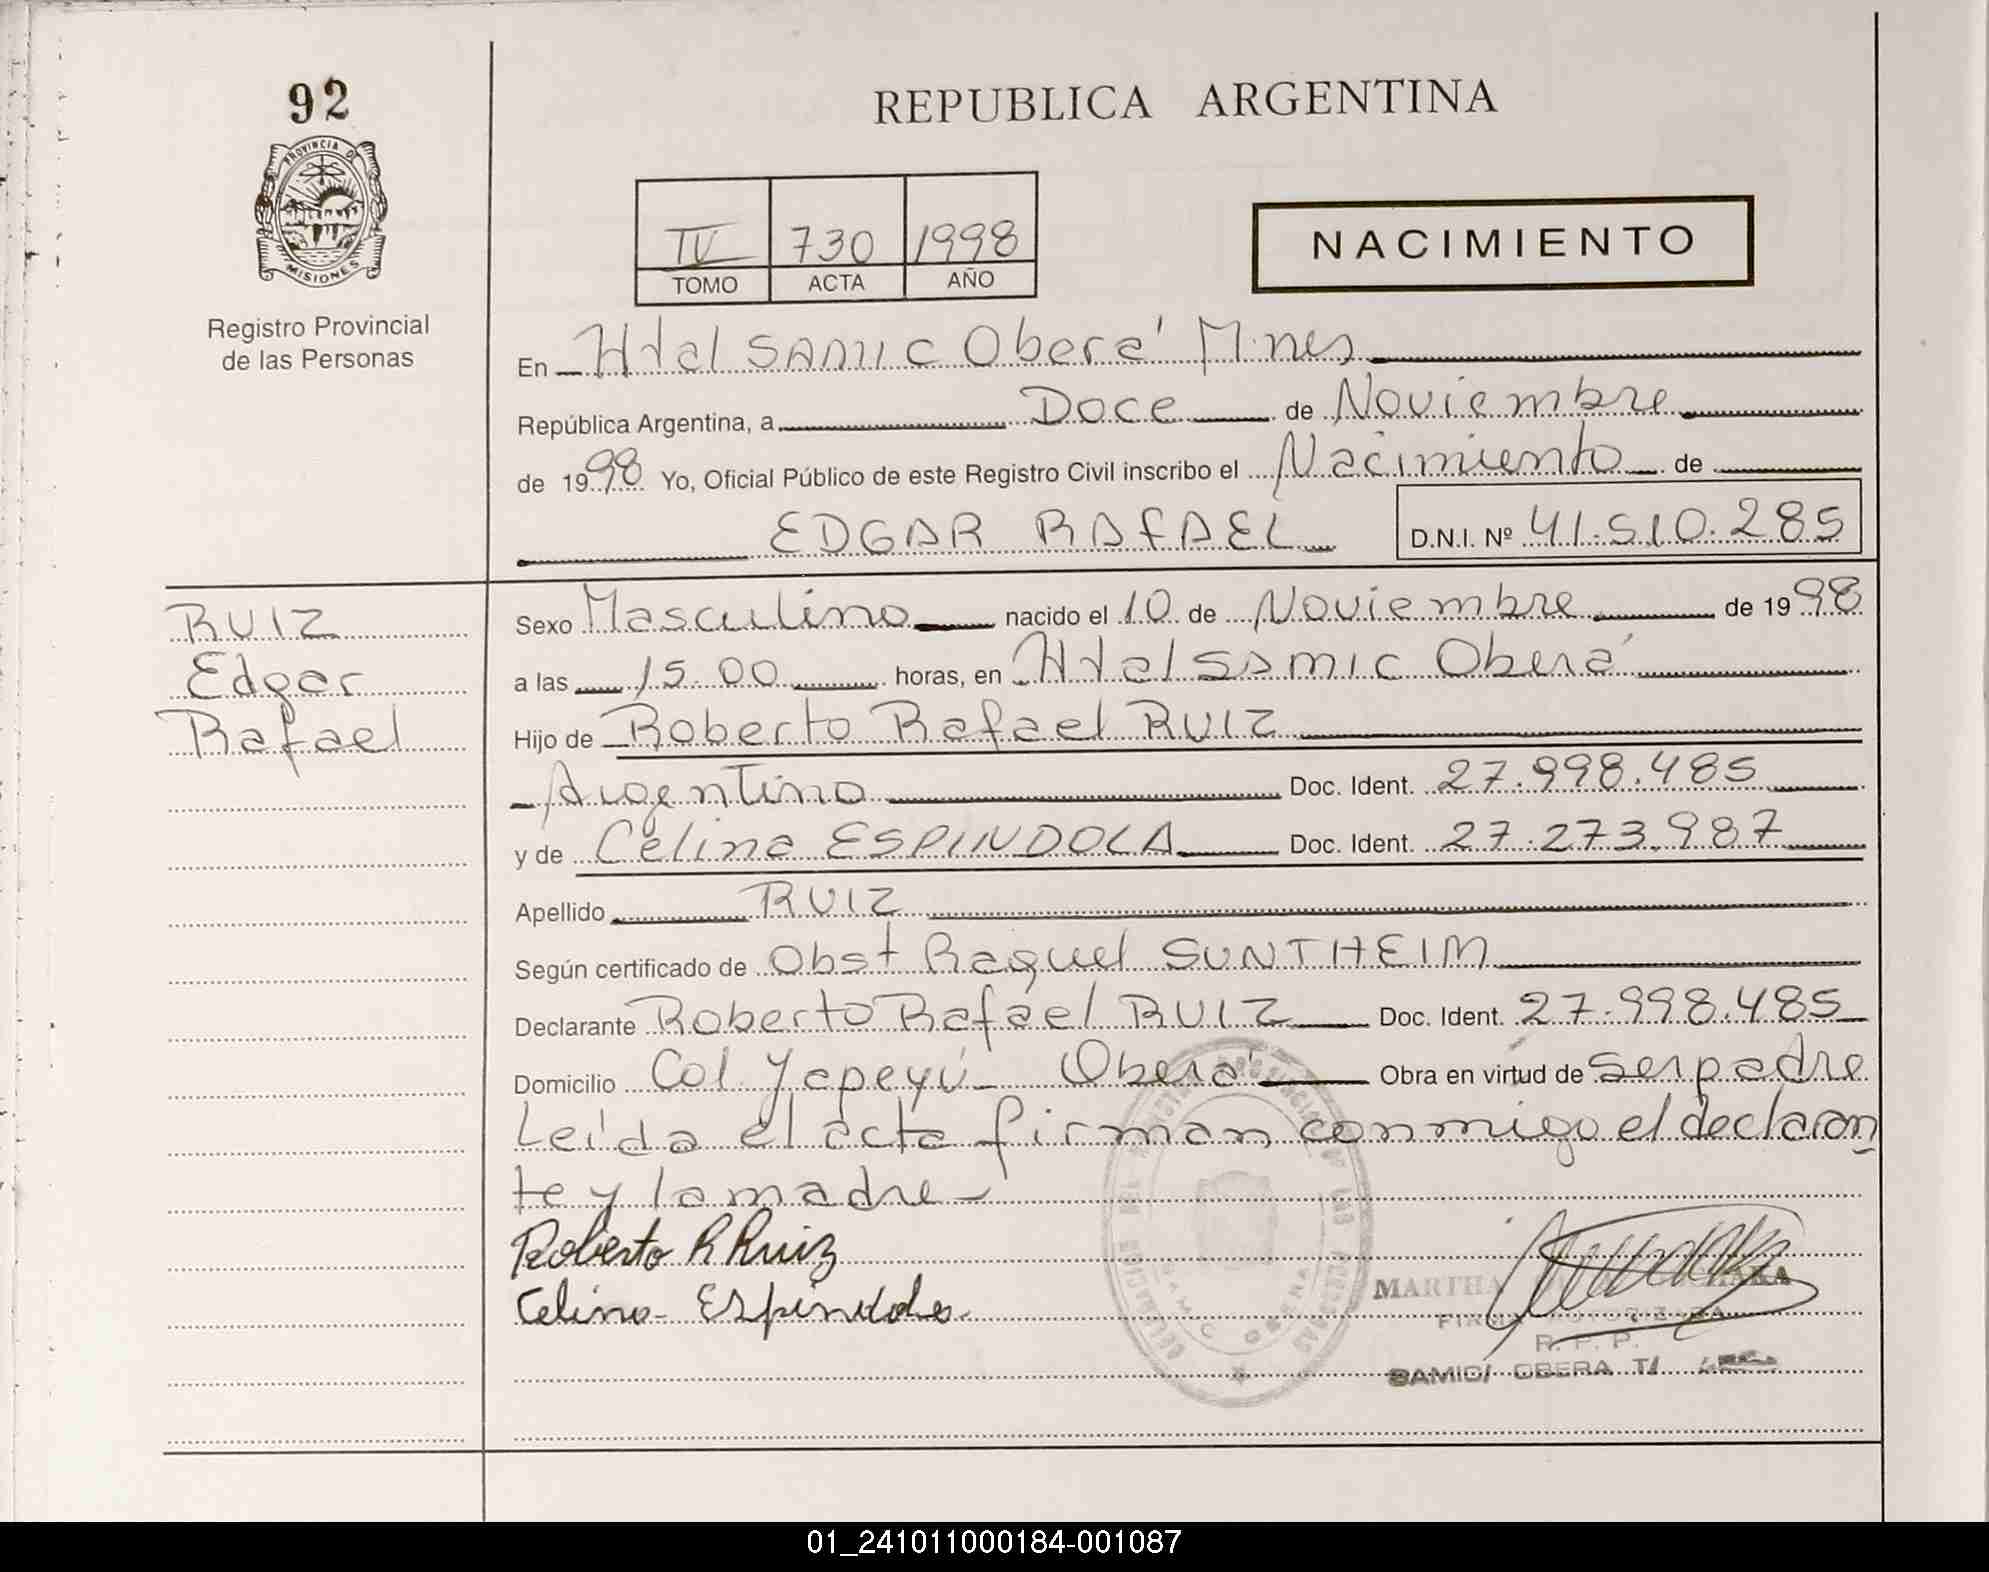 92
REPUBLICA ARGENTINA
PROVINCIA DE
MISIONES
Registro Provincial
de las Personas
IV 730 1998
TOMO ACTA AÑO
NACIMIENTO
En Htal SAMIC Oberá Mnes
República Argentina, a Doce de Noviembre
de 1998 Yo, Oficial Público de este Registro Civil inscribo el Nacimiento de
EDGAR RAFAEL D.N.I. Nº 41.510.285
RUIZ
Edgar
Rafael
Sexo Masculino nacido el 10 de Noviembre de 1998
a las 15.00 horas, en Htal SAMIC Oberá
Hijo de Roberto Rafael RUIZ
Argentino Doc. Ident. 27.998.485
y de Celina ESPINDOLA Doc. Ident. 27.273.987
Apellido RUIZ
Según certificado de Obst Raquel SUNTHEIM
Declarante Roberto Rafael RUIZ Doc. Ident. 27.998.485
Domicilio Col Yapeyú - Oberá Obra en virtud de ser padre
Leída el acta firman conmigo el declaran
te y la madre -
Roberto R Ruiz
Celina Espindola
MARTHA
FIRMA AUTORIZADA
R. P. P.
SAMIC OBERA
01_241011000184-001087